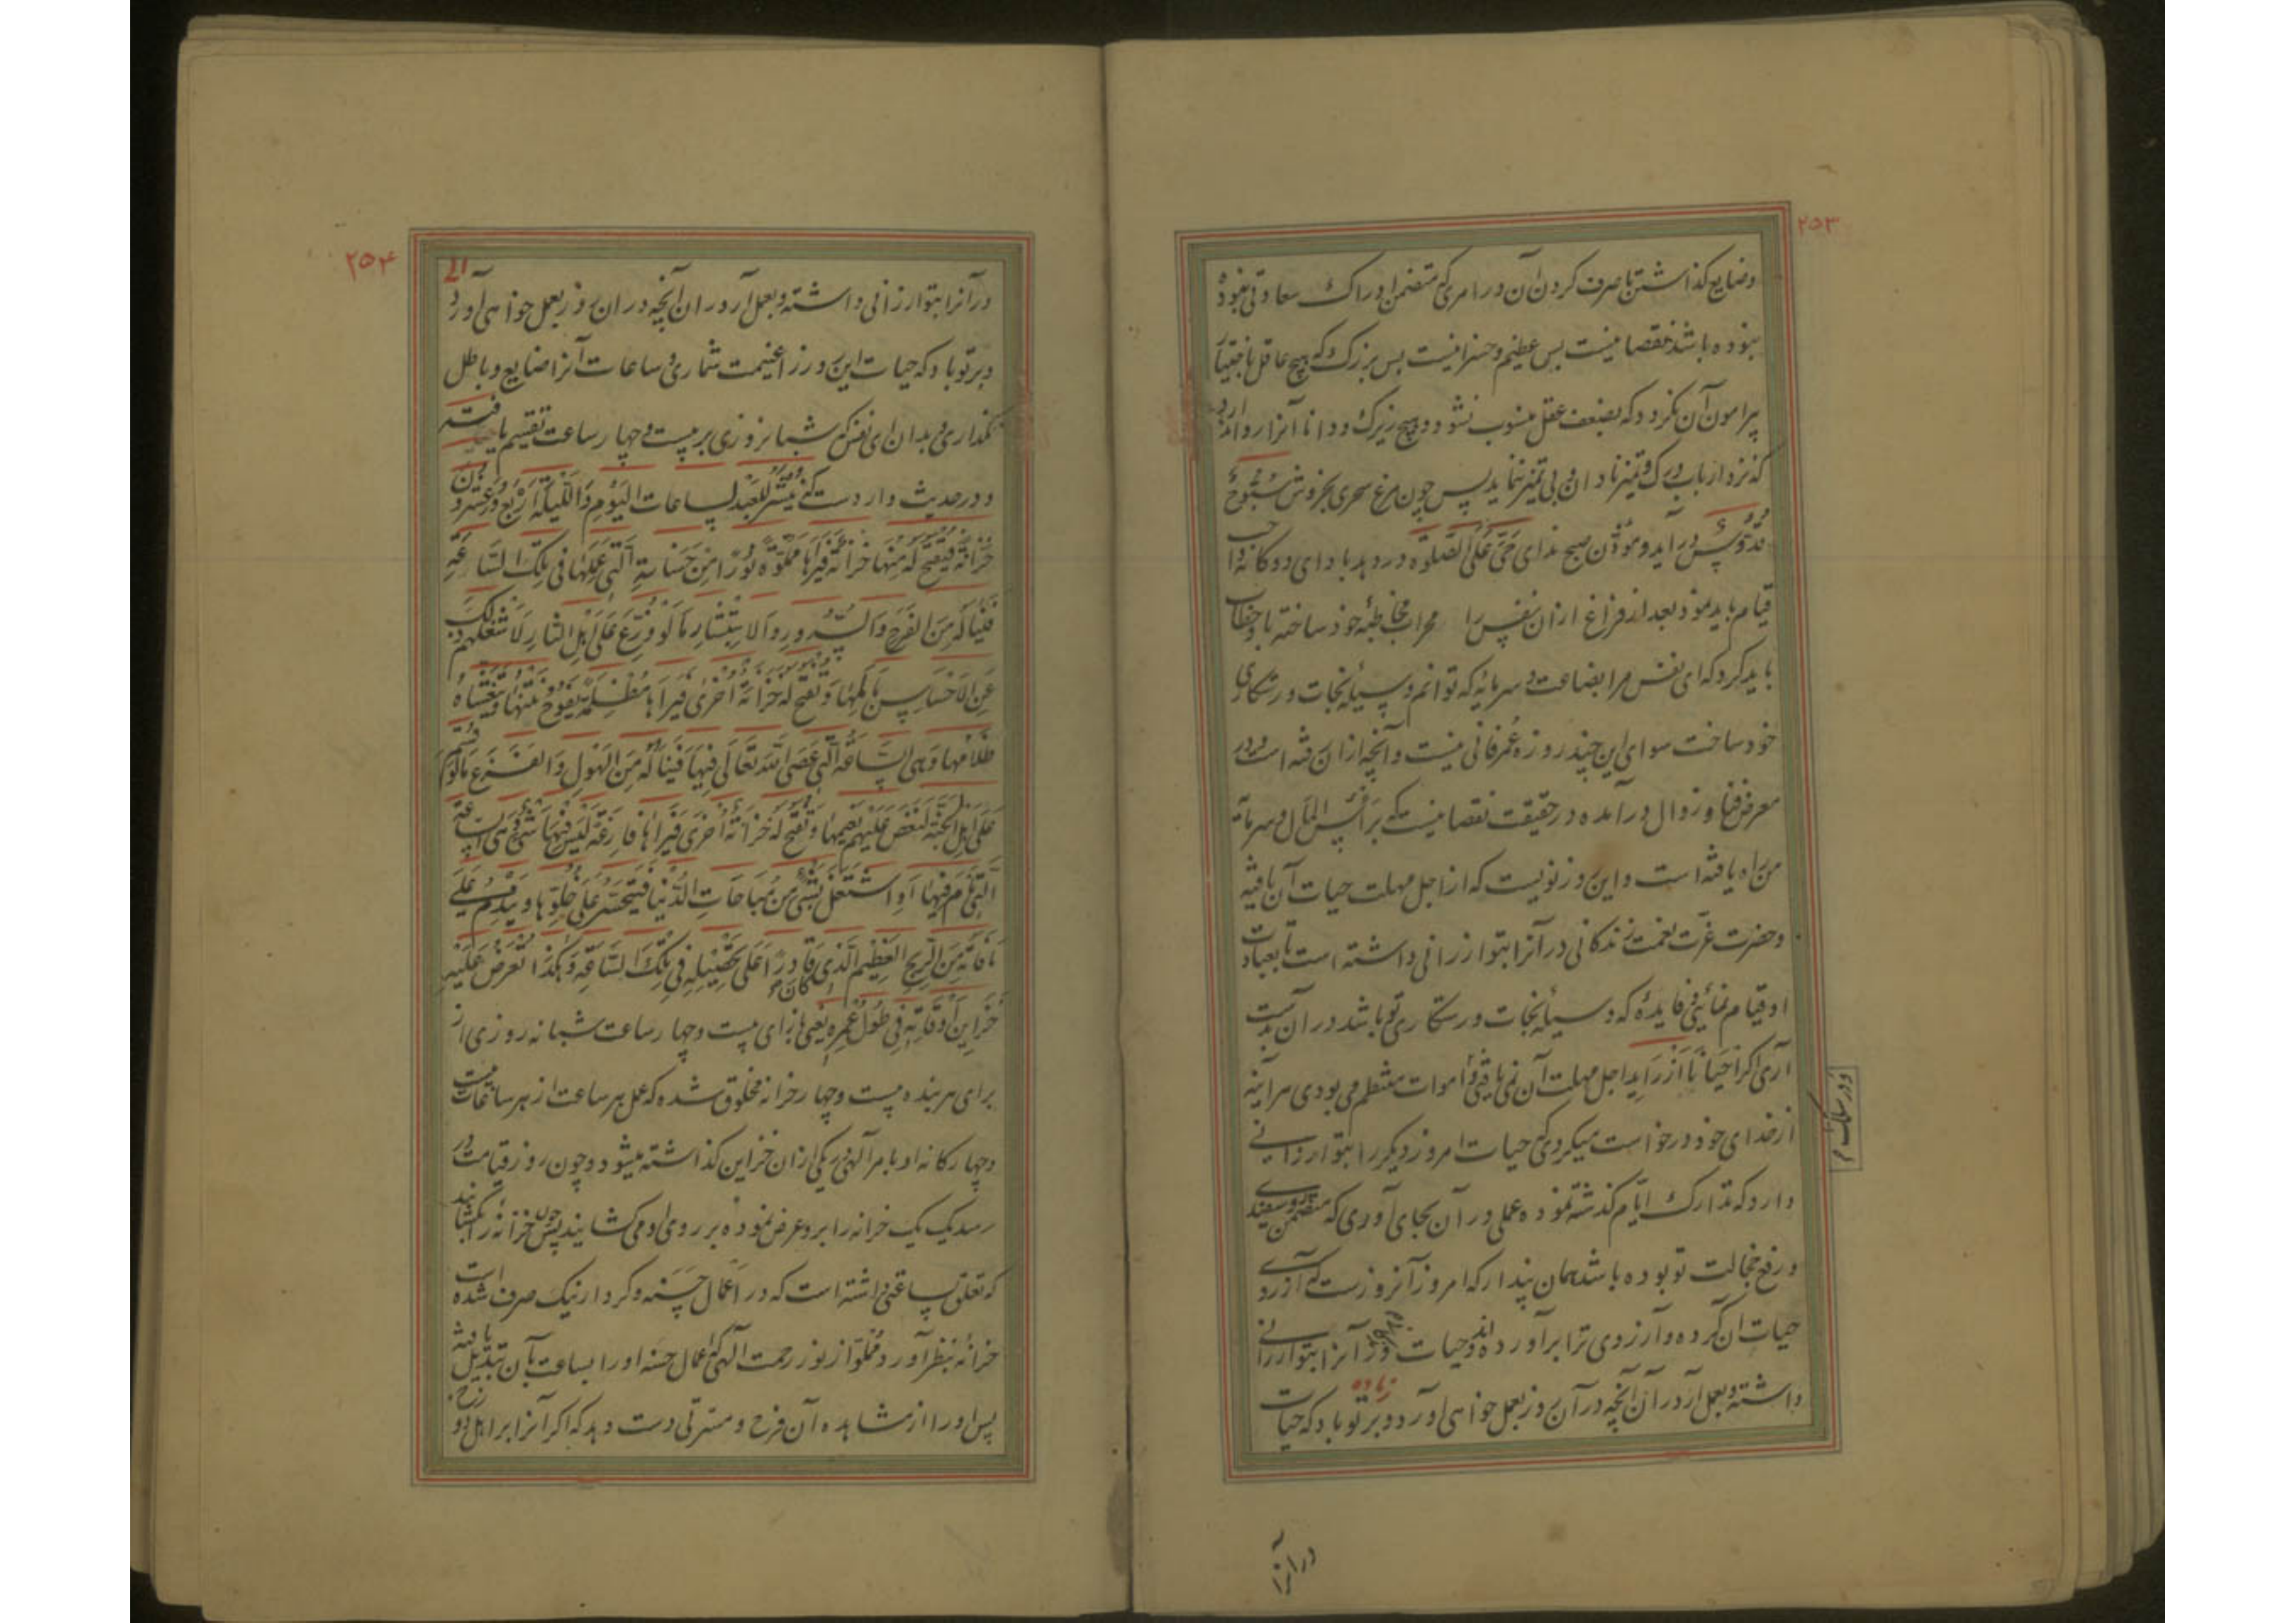 ۲۵۳
وضایع گذاشتن یا صرف کردن آن در امری که متضمن ادراک سعادتی نبوده
نبوده باشد نقصانیست بس عظیم و خسرانیست بس بزرک که هیچ عاقل باختیار
پیرامون آن نکردد که بضعف عقل منسوب نشود و هیچ زیرک و دانا آنرا روا ندارد
که نزد ارباب درک و تمیز نادان و بی تمیز نماید پس چون مرغ سحری بخروش سُبُّوحٌ
قُدُّوسٌ در آید و مؤذن صبح ندای حَیَّ عَلَی الصَّلوة در دهد بادای دوکانه واجب
قیام باید نمود بعد از فراغ ازان نفس را محراب مخاطبه خود ساخته با او خطاب
باید کرد که ای نفس مرا بضاعت و سرمایه که توانم وسیله نجات و رستکاری
خود ساخت سوای این چند روزه عمر فانی نیست و آنچه ازان رفته است و در
معرض فنا و زوال درآمده در حقیقت نقصانیست که بر رأس المال و سرمایه
من راه یافته است و این روز نویست که از اجل مهلت حیات آن یافته
وحضرت عزت نعمت زندکانی در آنرا بتو ارزانی داشته است تا بعبادت
او قیام نمائی و فایده که وسیله نجات و رستکاری تو باشد دران بدست
آری اکر احیانا از زَراید اجل مهلت آن نمی یافتی و اموات منتظم می بودی هر آینه
ودر سلک م
از خدای خود درخواست میکردی که حیات امروز دیکر را بتو ارزانی
دارد که تدارک ایام کذشته نموده عملی در آن بجای آوری که متضمن روسفیدی
و رفع خجالت تو بوده باشد همان پندار که امروز آنروزست که آرزوی
حیات ان کرده و آرزوی ترا برآورده اند و حیات در آنرا بتو ارزانی
زیاده
داشته و بعمل آر در آن آنچه در آن روز بعمل خواهی آورد و بر تو باد که حیات
در آنرا
۲۵۴
در آنرا بتو ارزانی داشته و بعمل آر در ان آنچه در ان روز بعمل خواهی آورد
و بر تو باد که حیات این روز را غنیمت شماری و ساعات آنرا ضایع و باطل
نکذاری و بدان ای نفس که شبانروزی بر بیست و چهار ساعت تقسیم یافته
و در حدیث وارد است که یُنشَر لِلعَبد لساعات الیَوم وَاللَّیلَةِ اَربَع وَعِشرُونَ
خَزانَة فَیُفتَح لَهُ مِنها خزانَة فَیَراها مَملُوَّة نُورًا مِن حَسناتِهِ الَّتی عَمِلَها فی تِلکَ السّاعَةِ
فَیَنالُهُ مِنَ الفَرَحِ وَالسُّرورِ والاستِبشارِ ما لَو وُزِّعَ عَلی اَهلِ النّارِ لَاَشغَلَهُم ذلِکَ
عَنِ الاِحساسِ بِاَلَمِها وَ تُفتَح لَهُ خزانَة اُخری فَیَراها مُظلِمَة یَفُوحُ نَتنُها وَ یَتَغَشّاهُ
ظَلامُها وَهِیَ السّاعَةُ الَّتی عَصَی اللهَ تَعالی فِیها فَیَنالُهُ مِنَ الهَولِ وَالفَزَعِ ما لَو قُسِّمَ
عَلی اَهلِ الجَنَّة لَنَغَّصَ عَلَیهِم نَعیمَها وَ تُفتَح لَهُ خزانَة اُخری فَیَراها فارِغَة لَیسَ فِیها شَیءٌ وَهِیَ السّاعَة
الَّتی نامَ فِیها اَوِ اشتَغَلَ بِشَیءٍ مِن مُباحاتِ الدُّنیا فَیَتَحَسَّرُ عَلی خُلُوِّها وَ یَندَمُ عَلی
ما فاتَهُ مِنَ الرِّبحِ العَظیمِ الَّذی کان قادِرًا عَلی تَحصیلِهِ فی تِلکَ السّاعَةِ وَ هکَذا تُعرَضُ عَلَیهِ
خَزاین اَوقاتِهِ فی طُولِ عُمرِهِ یعنی بازای بیست و چهار ساعت شبانه روزی از
برای هر بنده بیست و چهار خزانه مخلوق شده که عمل هر ساعت از ساعات بیست
و چهارکانه او بامر آلهی در یکی ازان خزاین کذاشته میشود و چون روز قیامت در
رسد یک یک خزانه را برو عرض نموده بر روی او می کشایند پس چون خزانه را بکشایند
که تعلق بساعتی داشته است که در اعمال حسنه و کردار نیک صرف شده است
خزانه بنظر آورد مملوّ از نور رحمت آلهی که اعمال حسنه او را بساعت بآن تبدیل یافته
پس او را از مشاهده آن فرح و مسرتی دست دهد که اکر آنرا بر اهل دوزخ